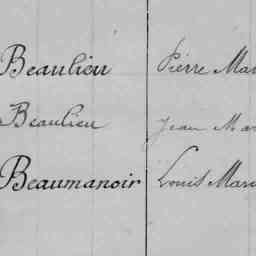 Beaulieu Pierre Mar
Beaulieu Jean Mar
Beaumanoir Louis Mari